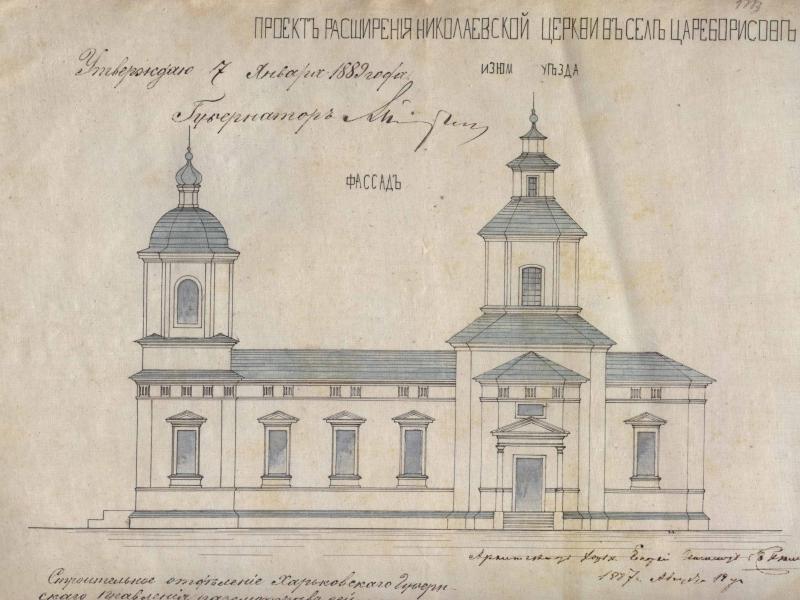 ПРОЕКТЪ РАСШИРЕНІЯ НИКОЛАЕВСКОЙ ЦЕРКВИ ВЪ СЕЛѢ ЦАРЕБОРИСОВѢ
ИЗЮМ УѢЗДА
Утверждаю 7 Января 1889 года
Губернаторъ
ФАССАДЪ
Архитекторъ
1887 г. Августа 19 дн
Строительное отдѣленіе Харьковскаго Губерн-
скаго Правленія